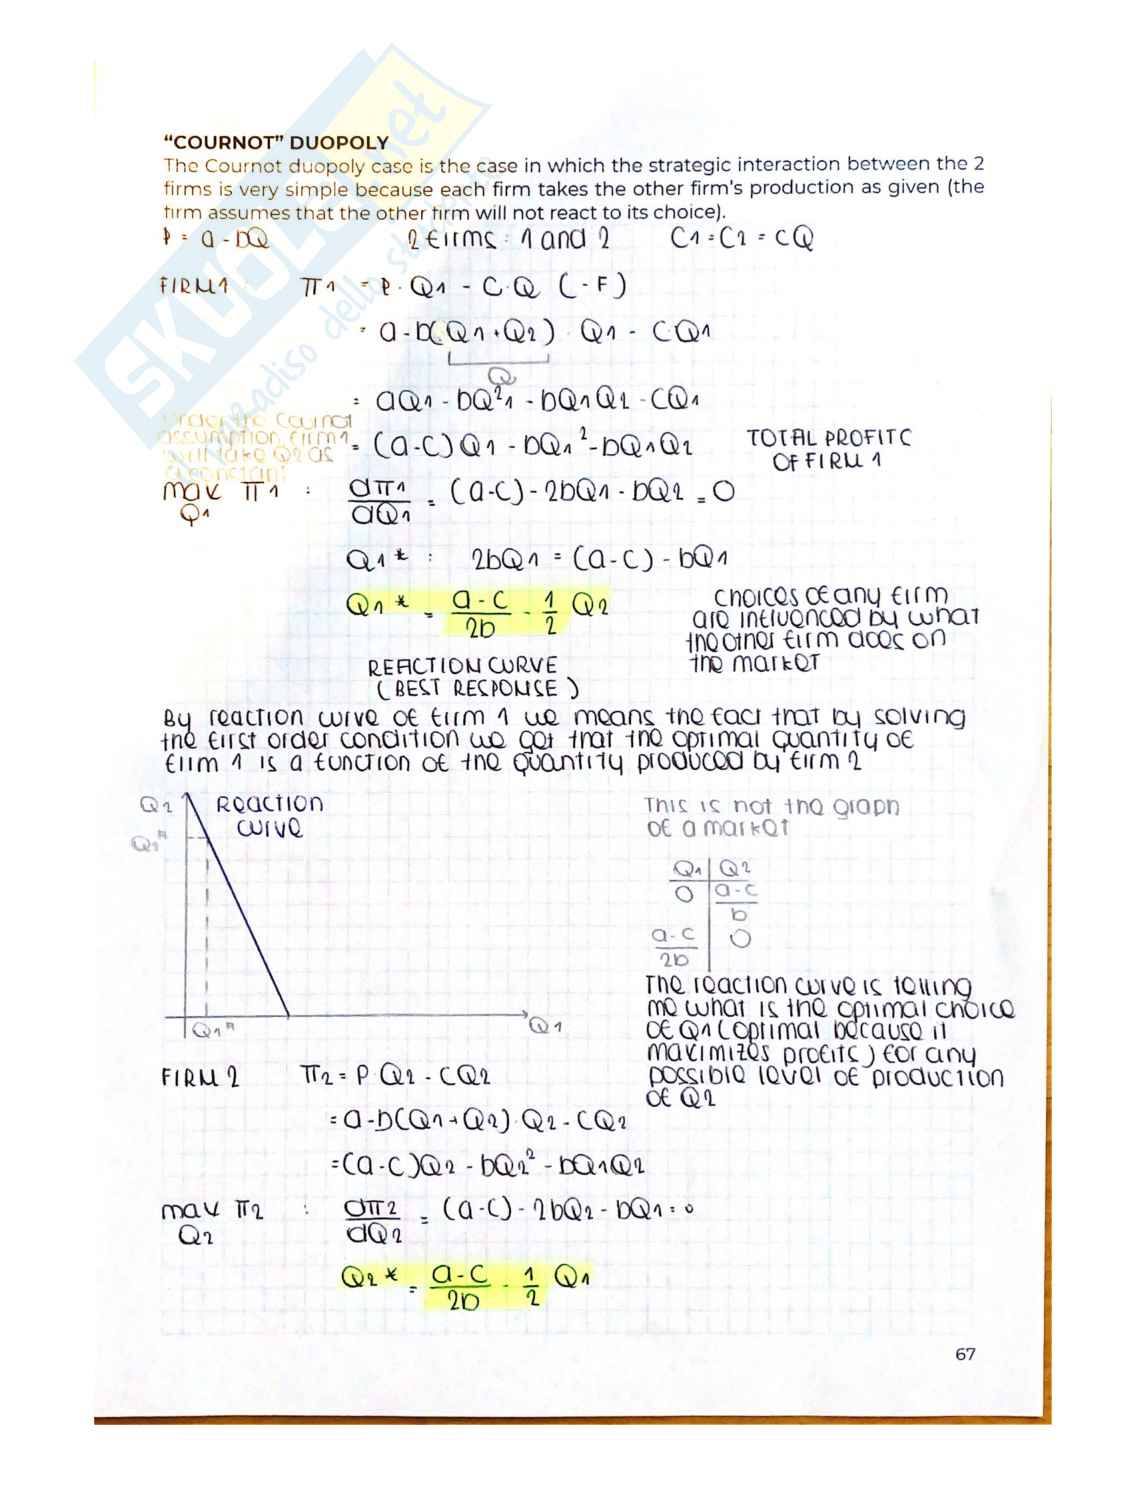 "COURNOT" DUOPOLY
The Cournot duopoly case is the case in which the strategic interaction between the 2
firms is very simple because each firm takes the other firm's production as given (the
firm assumes that the other firm will not react to its choice).
P = a - bQ 2 firms : 1 and 2 C1 = C2 = cQ
FIRM 1 : π1 = P · Q1 - C · Q (- F)
= a - b(Q1 + Q2) · Q1 - CQ1
Q
= aQ1 - bQ²1 - bQ1Q2 - CQ1
Under the Cournot
assumption firm 1
will take Q2 as
a constant
= (a-c)Q1 - bQ1² - bQ1Q2
TOTAL PROFITS
OF FIRM 1
max π1 : dπ1/dQ1 = (a-c) - 2bQ1 - bQ2 = 0
Q1
Q1* : 2bQ1 = (a-c) - bQ1
Q1* = a-c/2b - 1/2 Q2
choices of any firm
are influenced by what
the other firm does on
the market
REACTION CURVE
(BEST RESPONSE)
By reaction curve of firm 1 we means the fact that by solving
the first order condition we get that the optimal quantity of
firm 1 is a function of the quantity produced by firm 2
Q2 Reaction
curve
Q1*
Q1* Q1
This is not the graph
of a market
Q1 | Q2
0 | a-c/b
a-c/2b | 0
The reaction curve is telling
me what is the optimal choice
of Q1 (optimal because it
maximizes profits) for any
possible level of production
of Q2
FIRM 2 π2 = P · Q2 - CQ2
= a - b(Q1 + Q2) · Q2 - CQ2
= (a-c)Q2 - bQ2² - bQ1Q2
max π2 : dπ2/dQ2 = (a-c) - 2bQ2 - bQ1 = 0
Q2
Q2* = a-c/2b - 1/2 Q1
67
SKUOLA.net
paradiso dello studente